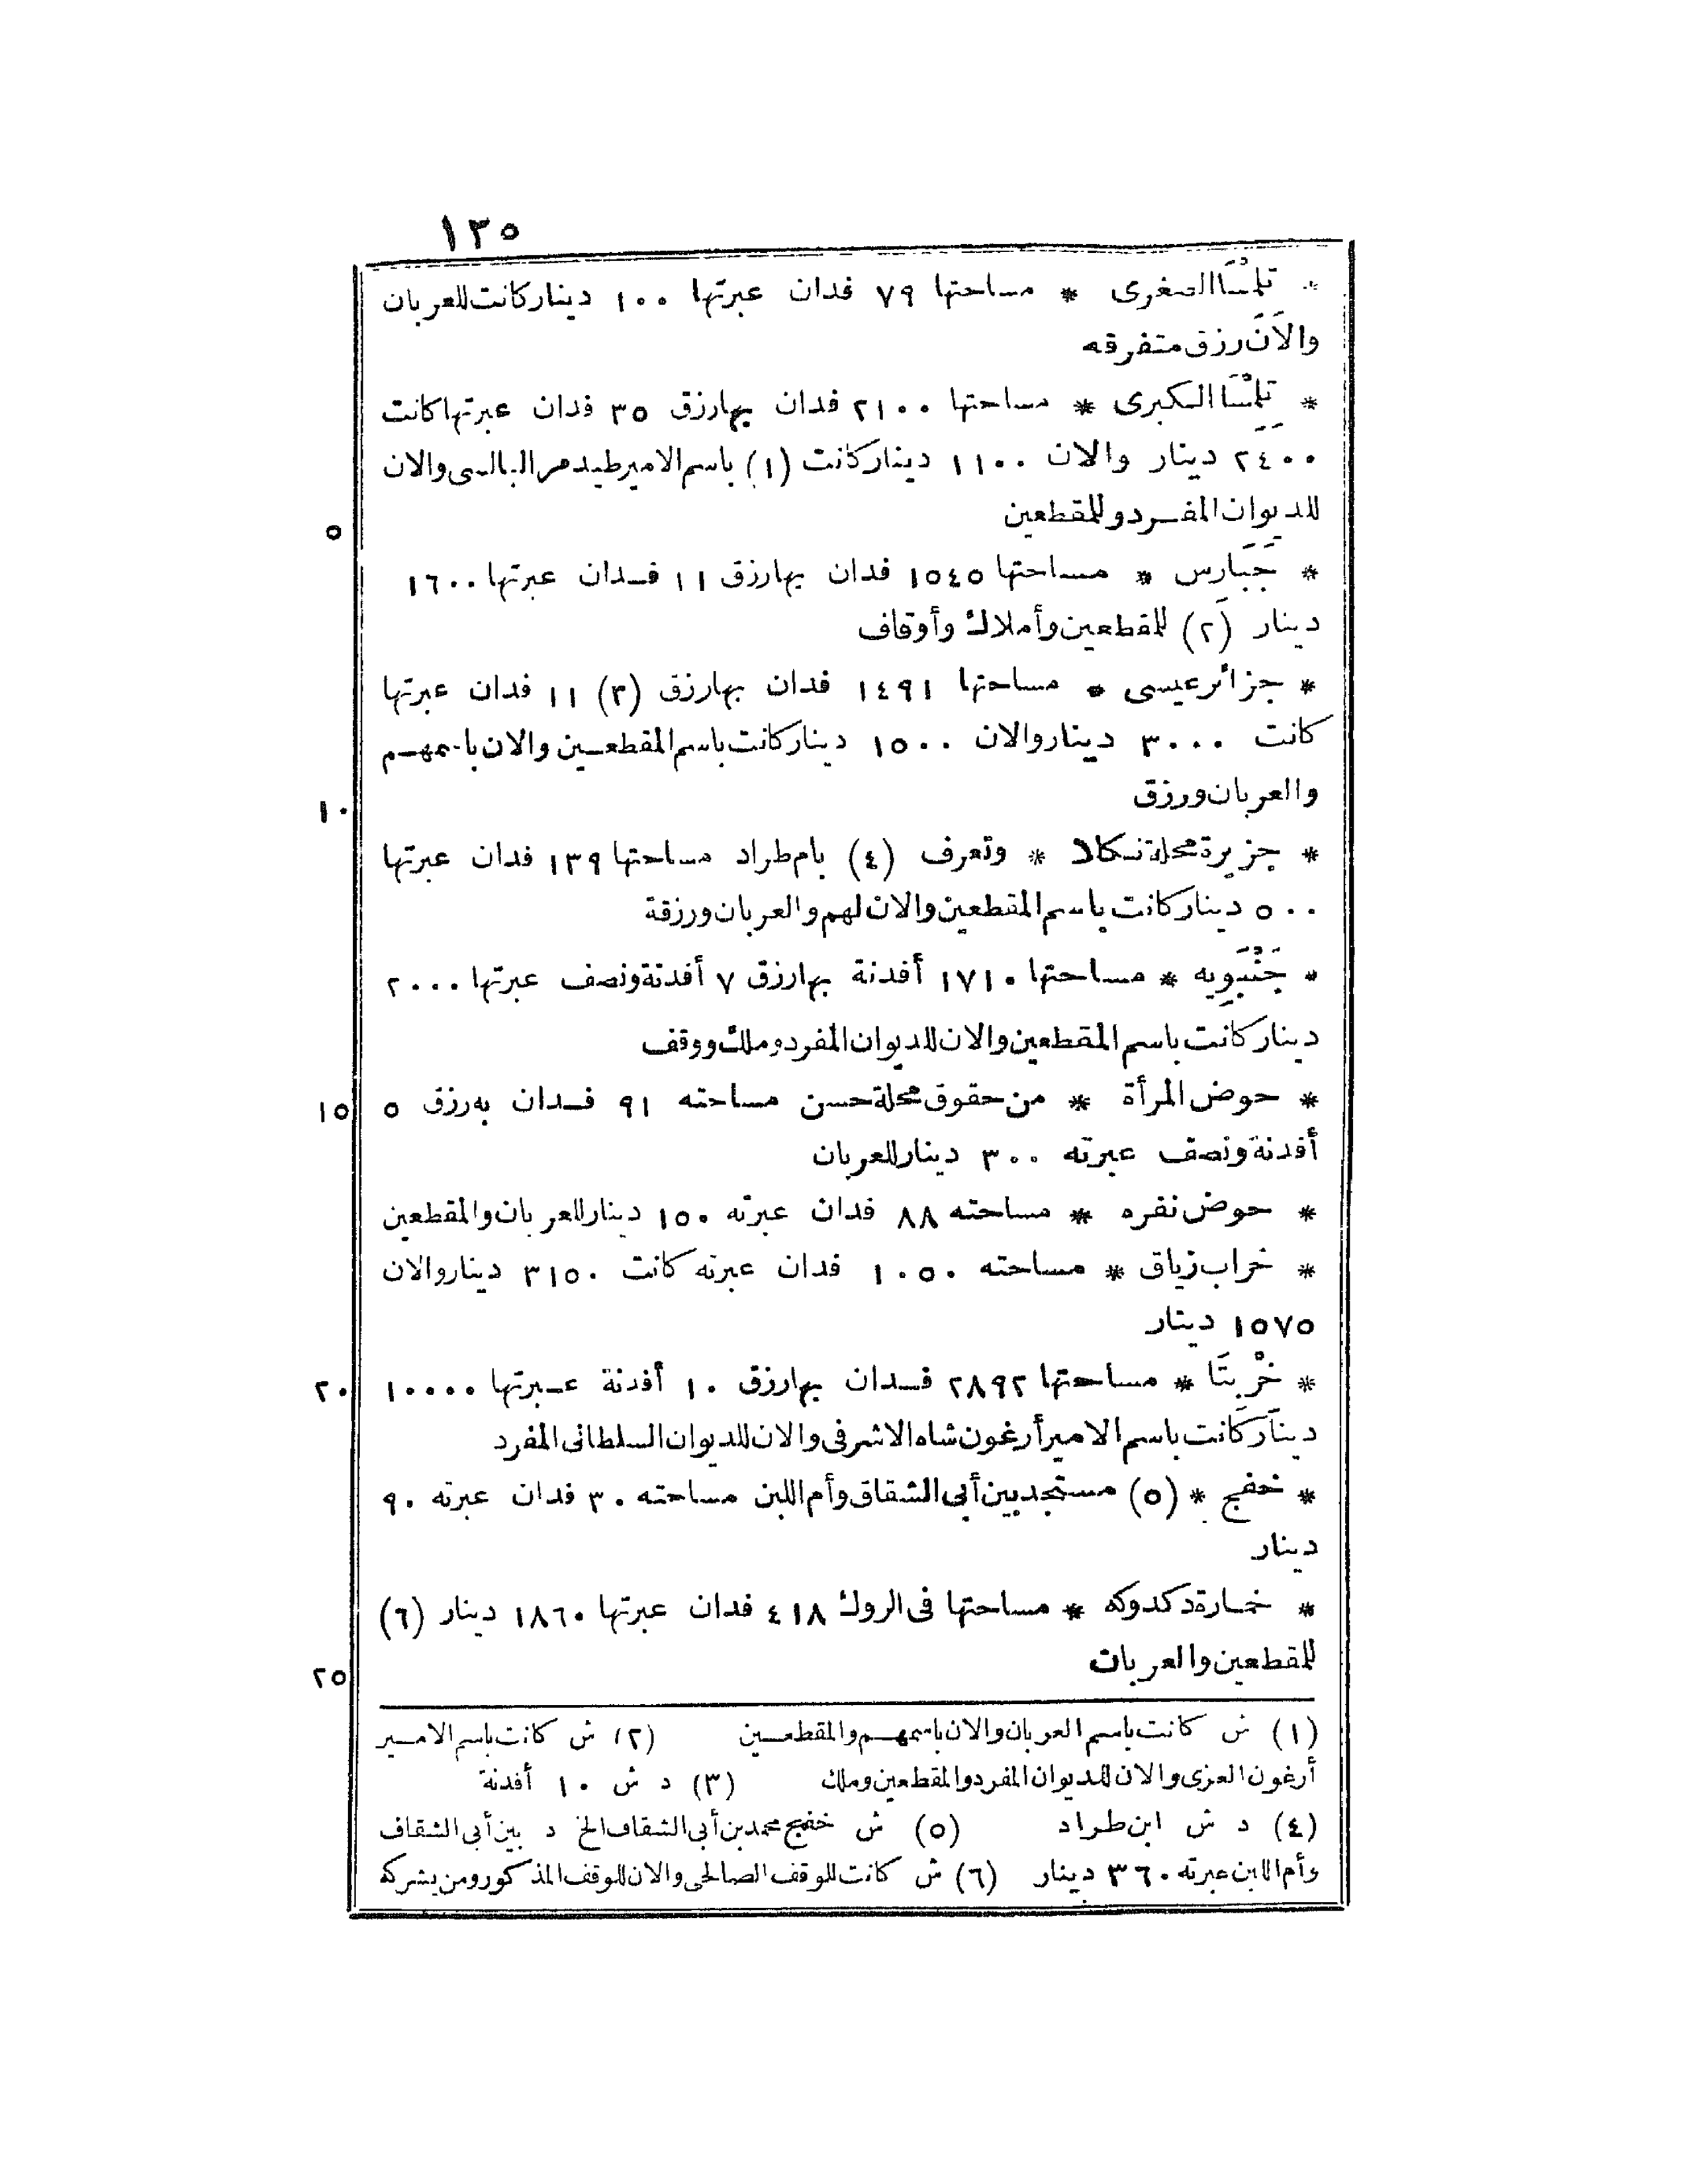 ١٣٥
* تِلِمْسَا الصغرى * مساحتها ٧٩ فدان عبرتها ١٠٠ دينار كانت للعربان
والآن رزق متفرقه
* الكبرى * مساحتها ٢١٠٠ فدان بها رزق ٣٥ فدان عبرتها كانت
٢٤٠٠ دينار والان ١١٠٠ دينار كانت (١) باسم الامير طيدمر البالسى والان
للديوان المفرد وللمقطعين
٥
* جَبَارِس * مساحتها ١٥٤٥ فدان بها رزق ١١ فدان عبرتها ١٦٠٠
دينار (٢) للمقطعين وأملاك وأوقاف
* جزائر عيسى * مساحتها ١٤٩١ فدان بها رزق (٣) ١١ فدان عبرتها
كانت ٣٠٠٠ دينار والان ١٥٠٠ دينار كانت باسم المقطعين والان باسمهم
والعربان ورزق
١٠
* جزيرة محلة نكلا * وتعرف (٤) بام طراد مساحتها ١٣٩ فدان عبرتها
٥٠٠ دينار كانت باسم المقطعين والان لهم والعربان ورزقة
* جَنْبَوِيه * مساحتها ١٧١٠ أفدنة بها رزق ٧ أفدنة ونصف عبرتها ٢٠٠٠
دينار كانت باسم المقطعين والان للديوان المفرد وملك ووقف
* حوض المرأة * من حقوق محلة حسن مساحته ٩١ فدان به رزق ٥
١٥
أفدنة ونصف عبرته ٣٠٠ دينار للعربان
* حوض نقره * مساحته ٨٨ فدان عبرته ١٥٠ دينار للعربان والمقطعين
* خراب زياق * مساحته ١٠٥٠ فدان عبرته كانت ٣١٥٠ دينار والان
١٥٧٥ دينار
* خَرْبِتَا * مساحتها ٢٨٩٢ فدان بها رزق ١٠ أفدنة عبرتها ١٠٠٠٠
٢٠
دينار كانت باسم الامير أرغون شاه الاشرفى والان للديوان السلطانى المفرد
* خفج * (٥) مستجد بين أبى الشقاق وأم اللبن مساحته ٣٠ فدان عبرته ٩٠
دينار
* خمارة دكدوكه * مساحتها فى الروك ٤١٨ فدان عبرتها ١٨٦٠ دينار (٦)
للمقطعين والعربان
٢٥
(١) ش كانت باسم العربان والان باسمهم والمقطعين (٢) ش كانت باسم الامير
أرغون العزى والان للديوان المفرد والمقطعين وملك (٣) د ش ١٠ أفدنة
(٤) د ش ابن طراد (٥) ش خفيج محمد بن أبى الشقاف الخ د بين أبى الشقاف
وأم اللبن عبرته ٣٦٠ دينار (٦) ش كانت للوقف الصالحى والان للوقف المذكور ومن يشركه